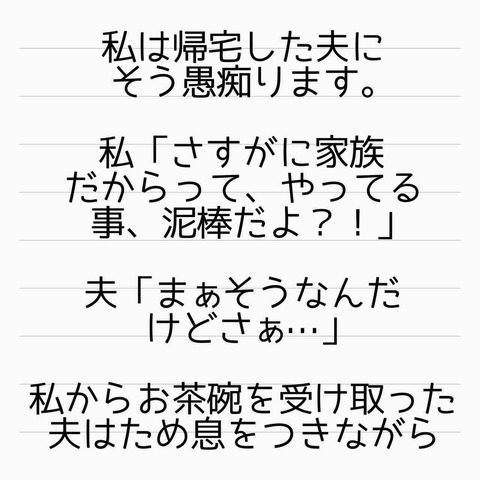 私は帰宅した夫に
そう愚痴ります。
私「さすがに家族
だからって、やってる
事、泥棒だよ？！」
夫「まぁそうなんだ
けどさぁ…」
私からお茶碗を受け取った
夫はため息をつきながら